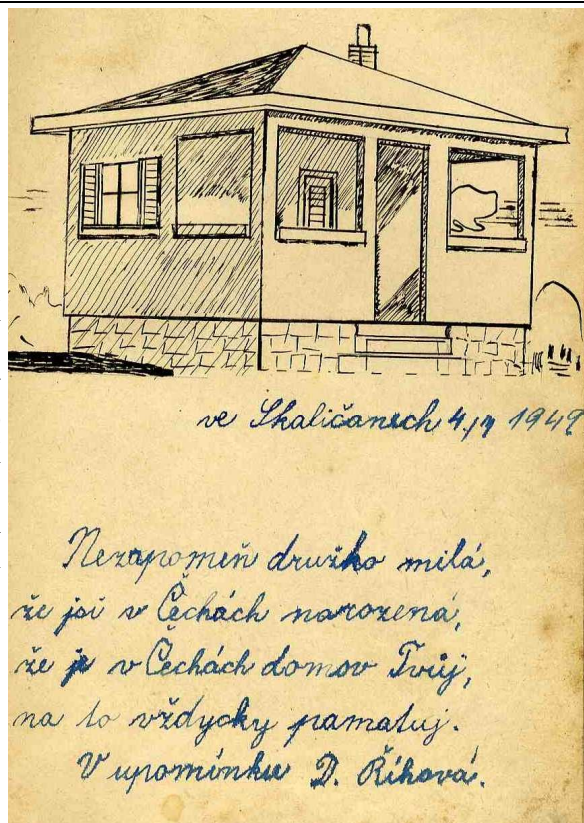 ve Skaličanech 4/IV 1949
Nezapomeň družko milá,
že jsi v Čechách narozená,
že je v Čechách domov Tvůj,
na to vždycky pamatuj.
V upomínku D. Říhová.